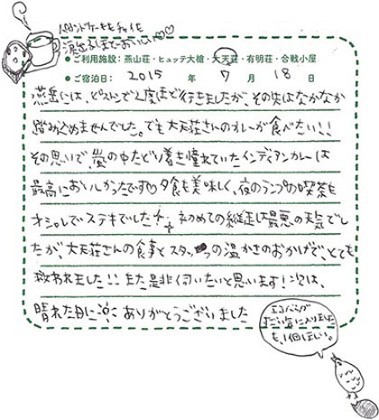 パウンドケーキとチャイも
涙出るほどおいしい♡♡
●ご利用施設：燕山荘・ヒュッテ大槍・大天荘・有明荘・合戦小屋
●ご宿泊日： 2015 年 7 月 18 日
燕岳には、ピストンで2度ほど行きましたが、その先はなかなか
踏み込めませんでした。でも大天荘さんのカレーが食べたい！！
その思いで、嵐の中たどり着き憧れていたインディアンカレーは
最高においしかったです♡夕食も美味しく、夜のランプの喫茶も
オシャレでステキでした 初めての縦走は最悪の天気でし
たが、大天荘さんの食事とスタッフの温かさのおかげで、とても
救われました！！また是非伺いたいと思います！次は、
晴れた日に ありがとうございました
エコバッグ
すごい気に入りました
も、1個ほしい。